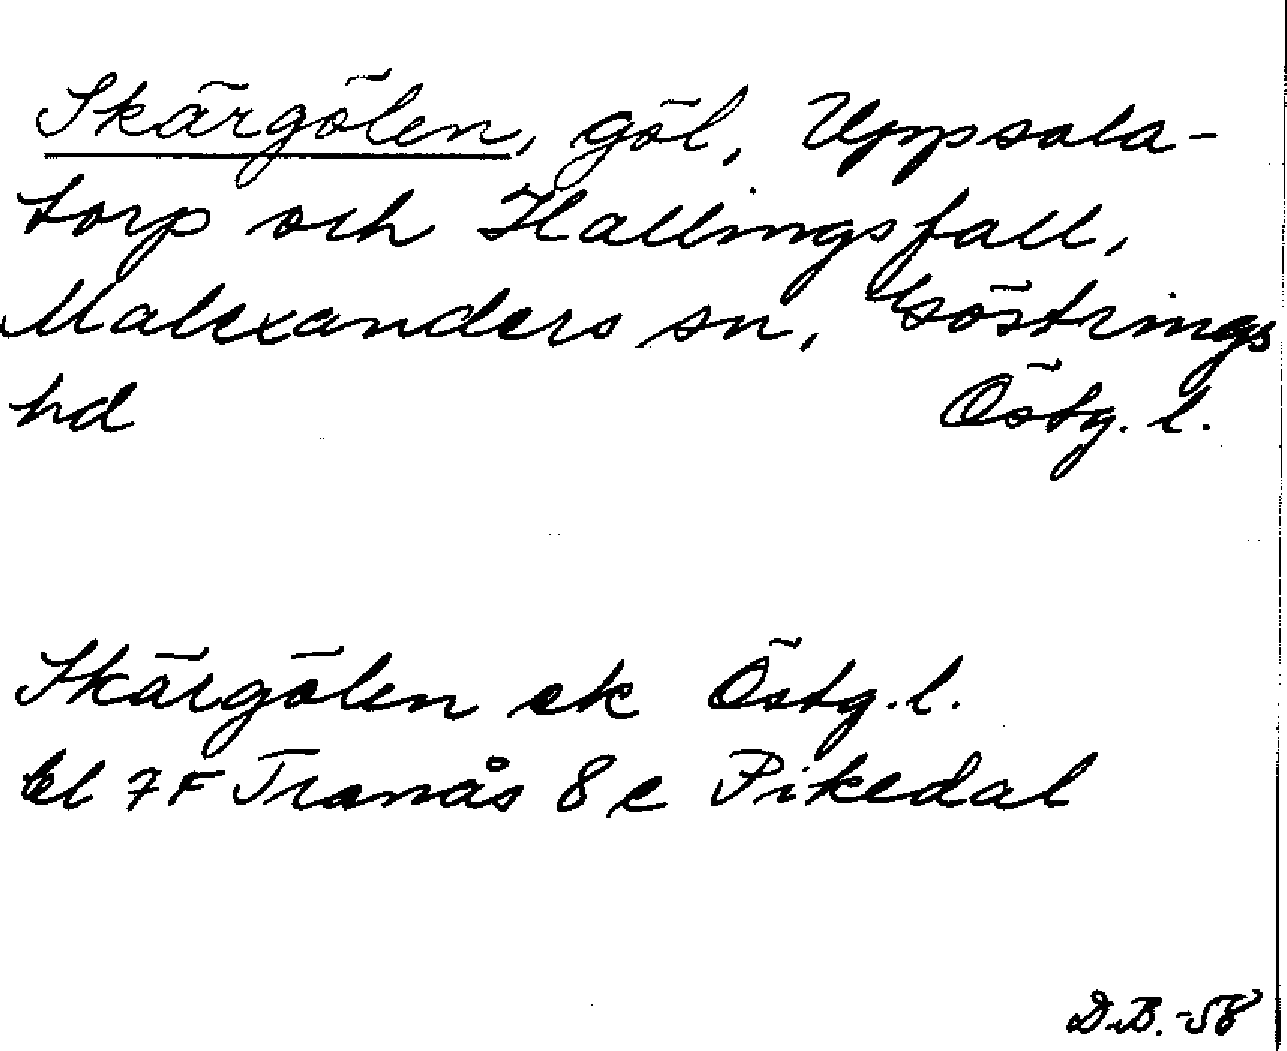 Skärgölen, göl, Uppsala-
torp och Hallingsfall,
Malexanders sn, Göstrings
hd Östg. l.
Skärgölen ek Östg. l.
bl 7F Tranås 8e Pikedal
D.B. -58